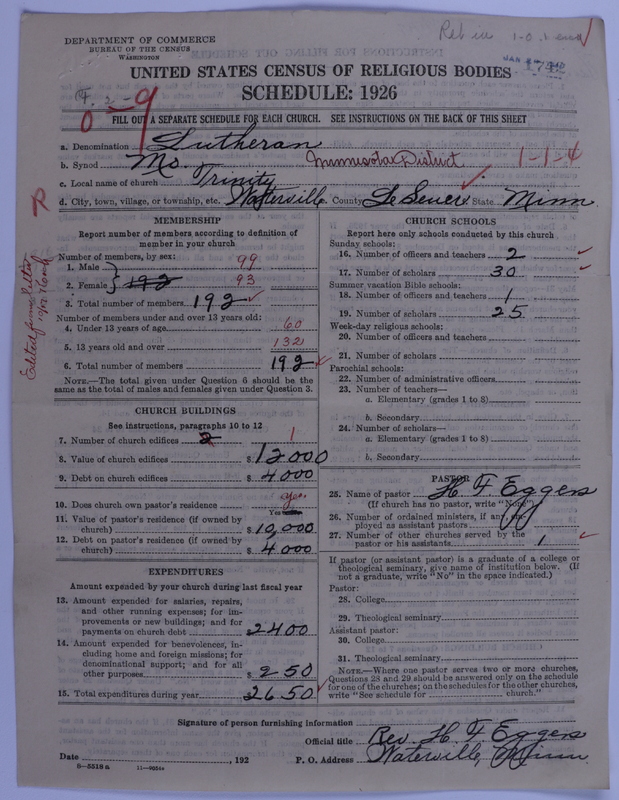 DEPARTMENT OF COMMERCE
BUREAU OF THE CENSUS
WASHINGTON
UNITED STATES CENSUS OF RELIGIOUS BODIES
SCHEDULE: 1926
FILL OUT A SEPARATE SCHEDULE FOR EACH CHURCH. SEE INSTRUCTIONS ON THE BACK OF THIS SHEET
a. Denomination Lutheran
b. Synod Mo. Minnesota District 1-1-4
c. Local name of church Trinity
d. City, town, village, or township, etc. Waterville e. County Le Sueur State Minn
MEMBERSHIP
Report number of members according to definition of
member in your church
Number of members, by sex:
1. Male 99
2. Female 192 93
3. Total number of members 192
Number of members under and over 13 years old:
4. Under 13 years of age 60
5. 13 years old and over 132
6. Total number of members 192
NOTE.—The total given under Question 6 should be
same as the total of males and females given under Question 3.
CHURCH BUILDINGS
See instructions, paragraphs 10 to 12
7. Number of church edifices 2 1
8. Value of church edifices $ 12000
9. Debt on church edifices $ 4000
10. Does church own pastor's residence yes
Yes
11. Value of pastor's residence (if owned by
church) $ 10,000
12. Debt on pastor's residence (if owned by
church) $ 4000
EXPENDITURES
Amount expended by your church during last fiscal year
13. Amount expended for salaries, repairs,
and other running expenses; for im-
provements or new buildings; and for
payments on church debt 2400
14. Amount expended for benevolences, in-
cluding home and foreign missions; for
denominational support; and for all
other purposes $ 250
15. Total expenditures during year 2650
CHURCH SCHOOLS
Report here only schools conducted by this church
Sunday schools:
16. Number of officers and teachers 2
17. Number of scholars 30
Summer vacation Bible schools:
18. Number of officers and teachers 1
19. Number of scholars 25
Week-day religious schools:
20. Number of officers and teachers
21. Number of scholars
Parochial schools:
22. Number of administrative officers
23. Number of teachers—
a. Elementary (grades 1 to 8)
b. Secondary
24. Number of scholars—
a. Elementary (grades 1 to 8)
b. Secondary
PASTOR
25. Name of pastor H F Eggers
(If church has no pastor, write "None")
26. Number of ordained ministers, if any, em-
ployed as assistant pastors
27. Number of other churches served by the
pastor or his assistants 1
If pastor (or assistant pastor) is a graduate of a college or
theological seminary, give name of institution below. (If
not a graduate, write "No" in the space indicated.)
Pastor:
28. College
29. Theological seminary
Assistant pastor:
30. College
31. Theological seminary
NOTE.—Where one pastor serves two or more churches,
Questions 28 and 29 should be answered only on the schedule
for one of the churches; on the schedules for the other churches,
write "See schedule for church."
Signature of person furnishing information
Official title Rev. H F Eggers
Date , 192 P. O. Address Waterville, Minn.
8-5518 a